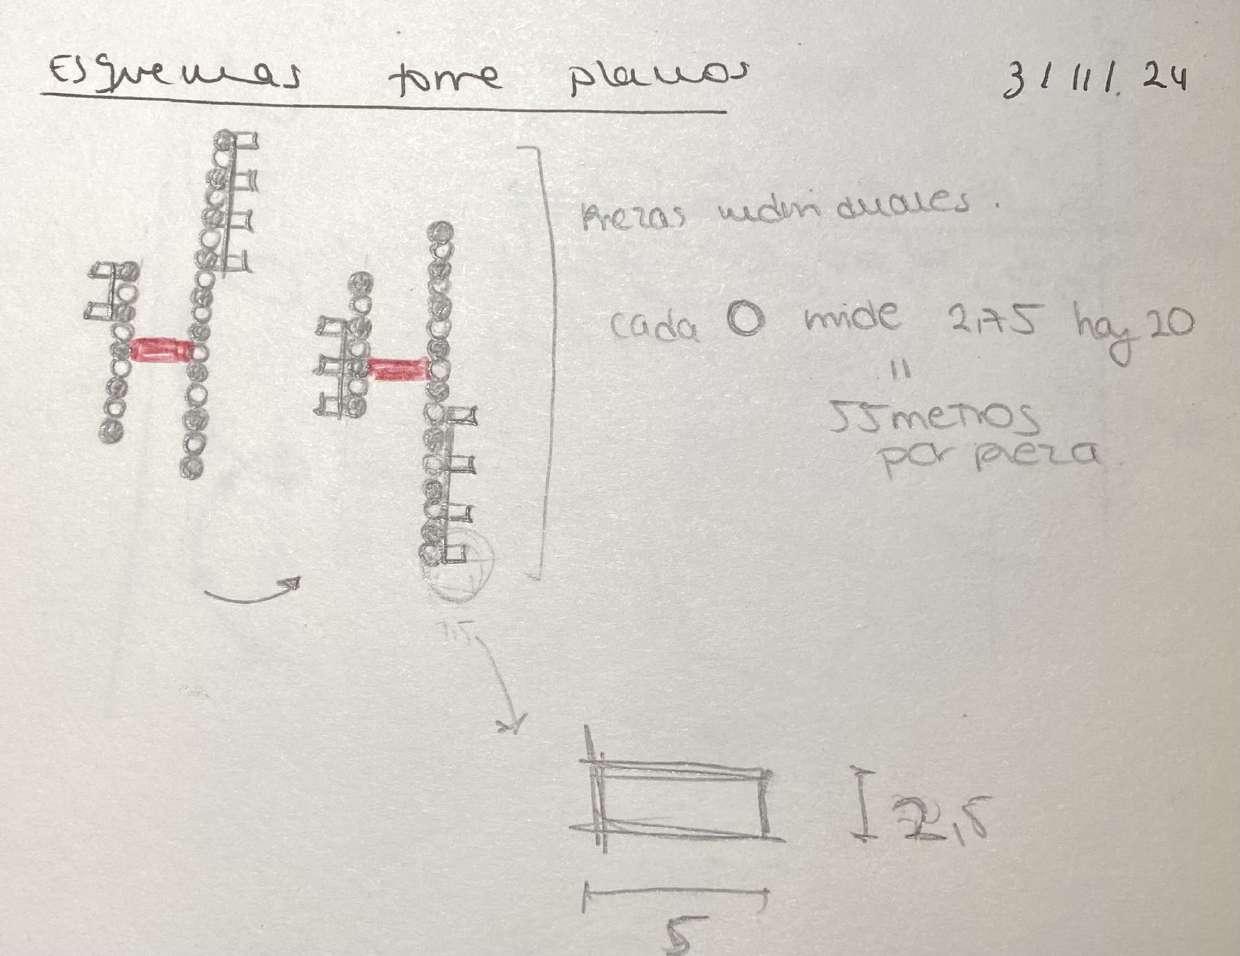 Esquemas torre planos 3/11/.24
Piezas individuales.
cada O mide 2,75 hay 20
"
55 metros
por pieza.
7,5
2,5
5